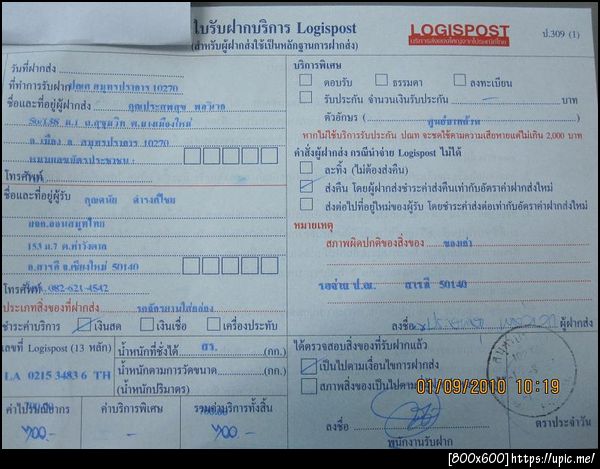 ใบรับฝากบริการ Logispost
(สำหรับผู้ฝากส่งใช้เป็นหลักฐานการฝากส่ง)
LOGISPOST
ป.309 (1)
วันที่ฝากส่ง
ที่ทำการรับฝาก ปณศ สมุทรปราการ 10270
ชื่อและที่อยู่ผู้ฝากส่ง คุณประสพสุข
ถ.สุขุมวิท ต.บางเมืองใหม่
อ.เมือง จ. สมุทรปราการ 10270
หมายเลขบัตรประชาชน :
โทรศัพท์
ชื่อและที่อยู่ผู้รับ คุณดนัย
153 ม.7 ต.ท่าวังตาล
อ.สารภี จ.เชียงใหม่ 50140
โทรศัพท์ 082-621-4542
ประเภทสิ่งของที่ฝากส่ง รถจักรยานใส่กล่อง
ชำระค่าบริการ เงินสด เงินเชื่อ เครื่องประทับ
เลขที่ Logispost (13 หลัก)
LA 0215 3483 6 TH
น้ำหนักที่ชั่งได้ (กก.)
น้ำหนักตามการวัดขนาด (กก.)
(น้ำหนักปริมาตร)
ค่าไปรับที่บ้าน
ค่าบริการพิเศษ
รวมค่าบริการทั้งสิ้น
บริการพิเศษ
ตอบรับ ธรรมดา ลงทะเบียน
รับประกัน จำนวนเงินรับประกัน บาท
ตัวอักษร ( ศูนย์บาทถ้วน )
หากไม่ใช้บริการรับประกัน ปณท จะชดใช้ตามความเสียหายแต่ไม่เกิน 2,000 บาท
คำสั่งผู้ฝากส่ง กรณีนำจ่าย Logispost ไม่ได้
ละทิ้ง (ไม่ต้องส่งคืน)
ส่งคืน โดยผู้ฝากส่งชำระค่าส่งคืนเท่ากับอัตราค่าฝากส่งใหม่
ส่งต่อไปที่อยู่ใหม่ของผู้รับ โดยชำระค่าส่งต่อเท่ากับอัตราค่าฝากส่งใหม่
หมายเหตุ
สภาพผิดปกติของสิ่งของ ของเก่า
รอจ่าย ป.ณ. สารภี 50140
ลงชื่อ ผู้ฝากส่ง
ได้ตรวจสอบสิ่งของที่รับฝากแล้ว
เป็นไปตามเงื่อนไขการฝากส่ง
สภาพสิ่งของเป็นไปตาม
01/09/2010 10:19
ลงชื่อ
พนักงานรับฝาก
ตราประจำวัน
[800x600] https://upic.me/